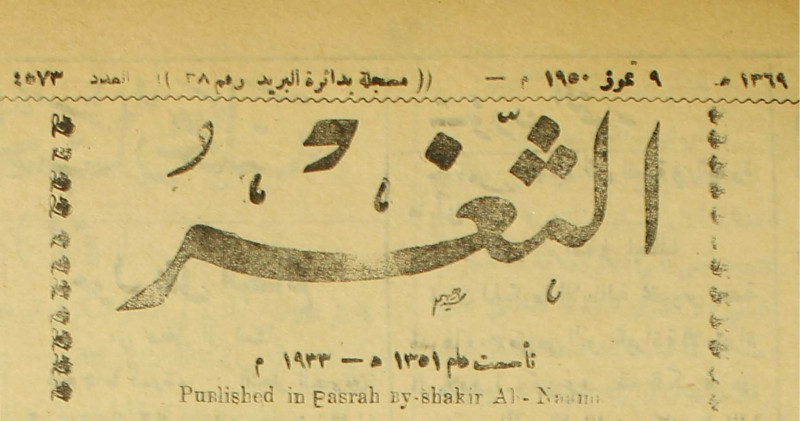 ١٣٦٩ هـ ٩ تموز ١٩٥٠ م — (( مسجلة بدائرة البريد رقم ٣٨ )) العدد ٤٥٧٣
الثغر
تأسست عام ١٣٥١ هـ — ١٩٣٣ م
Published in Basrah By-shakir Al-